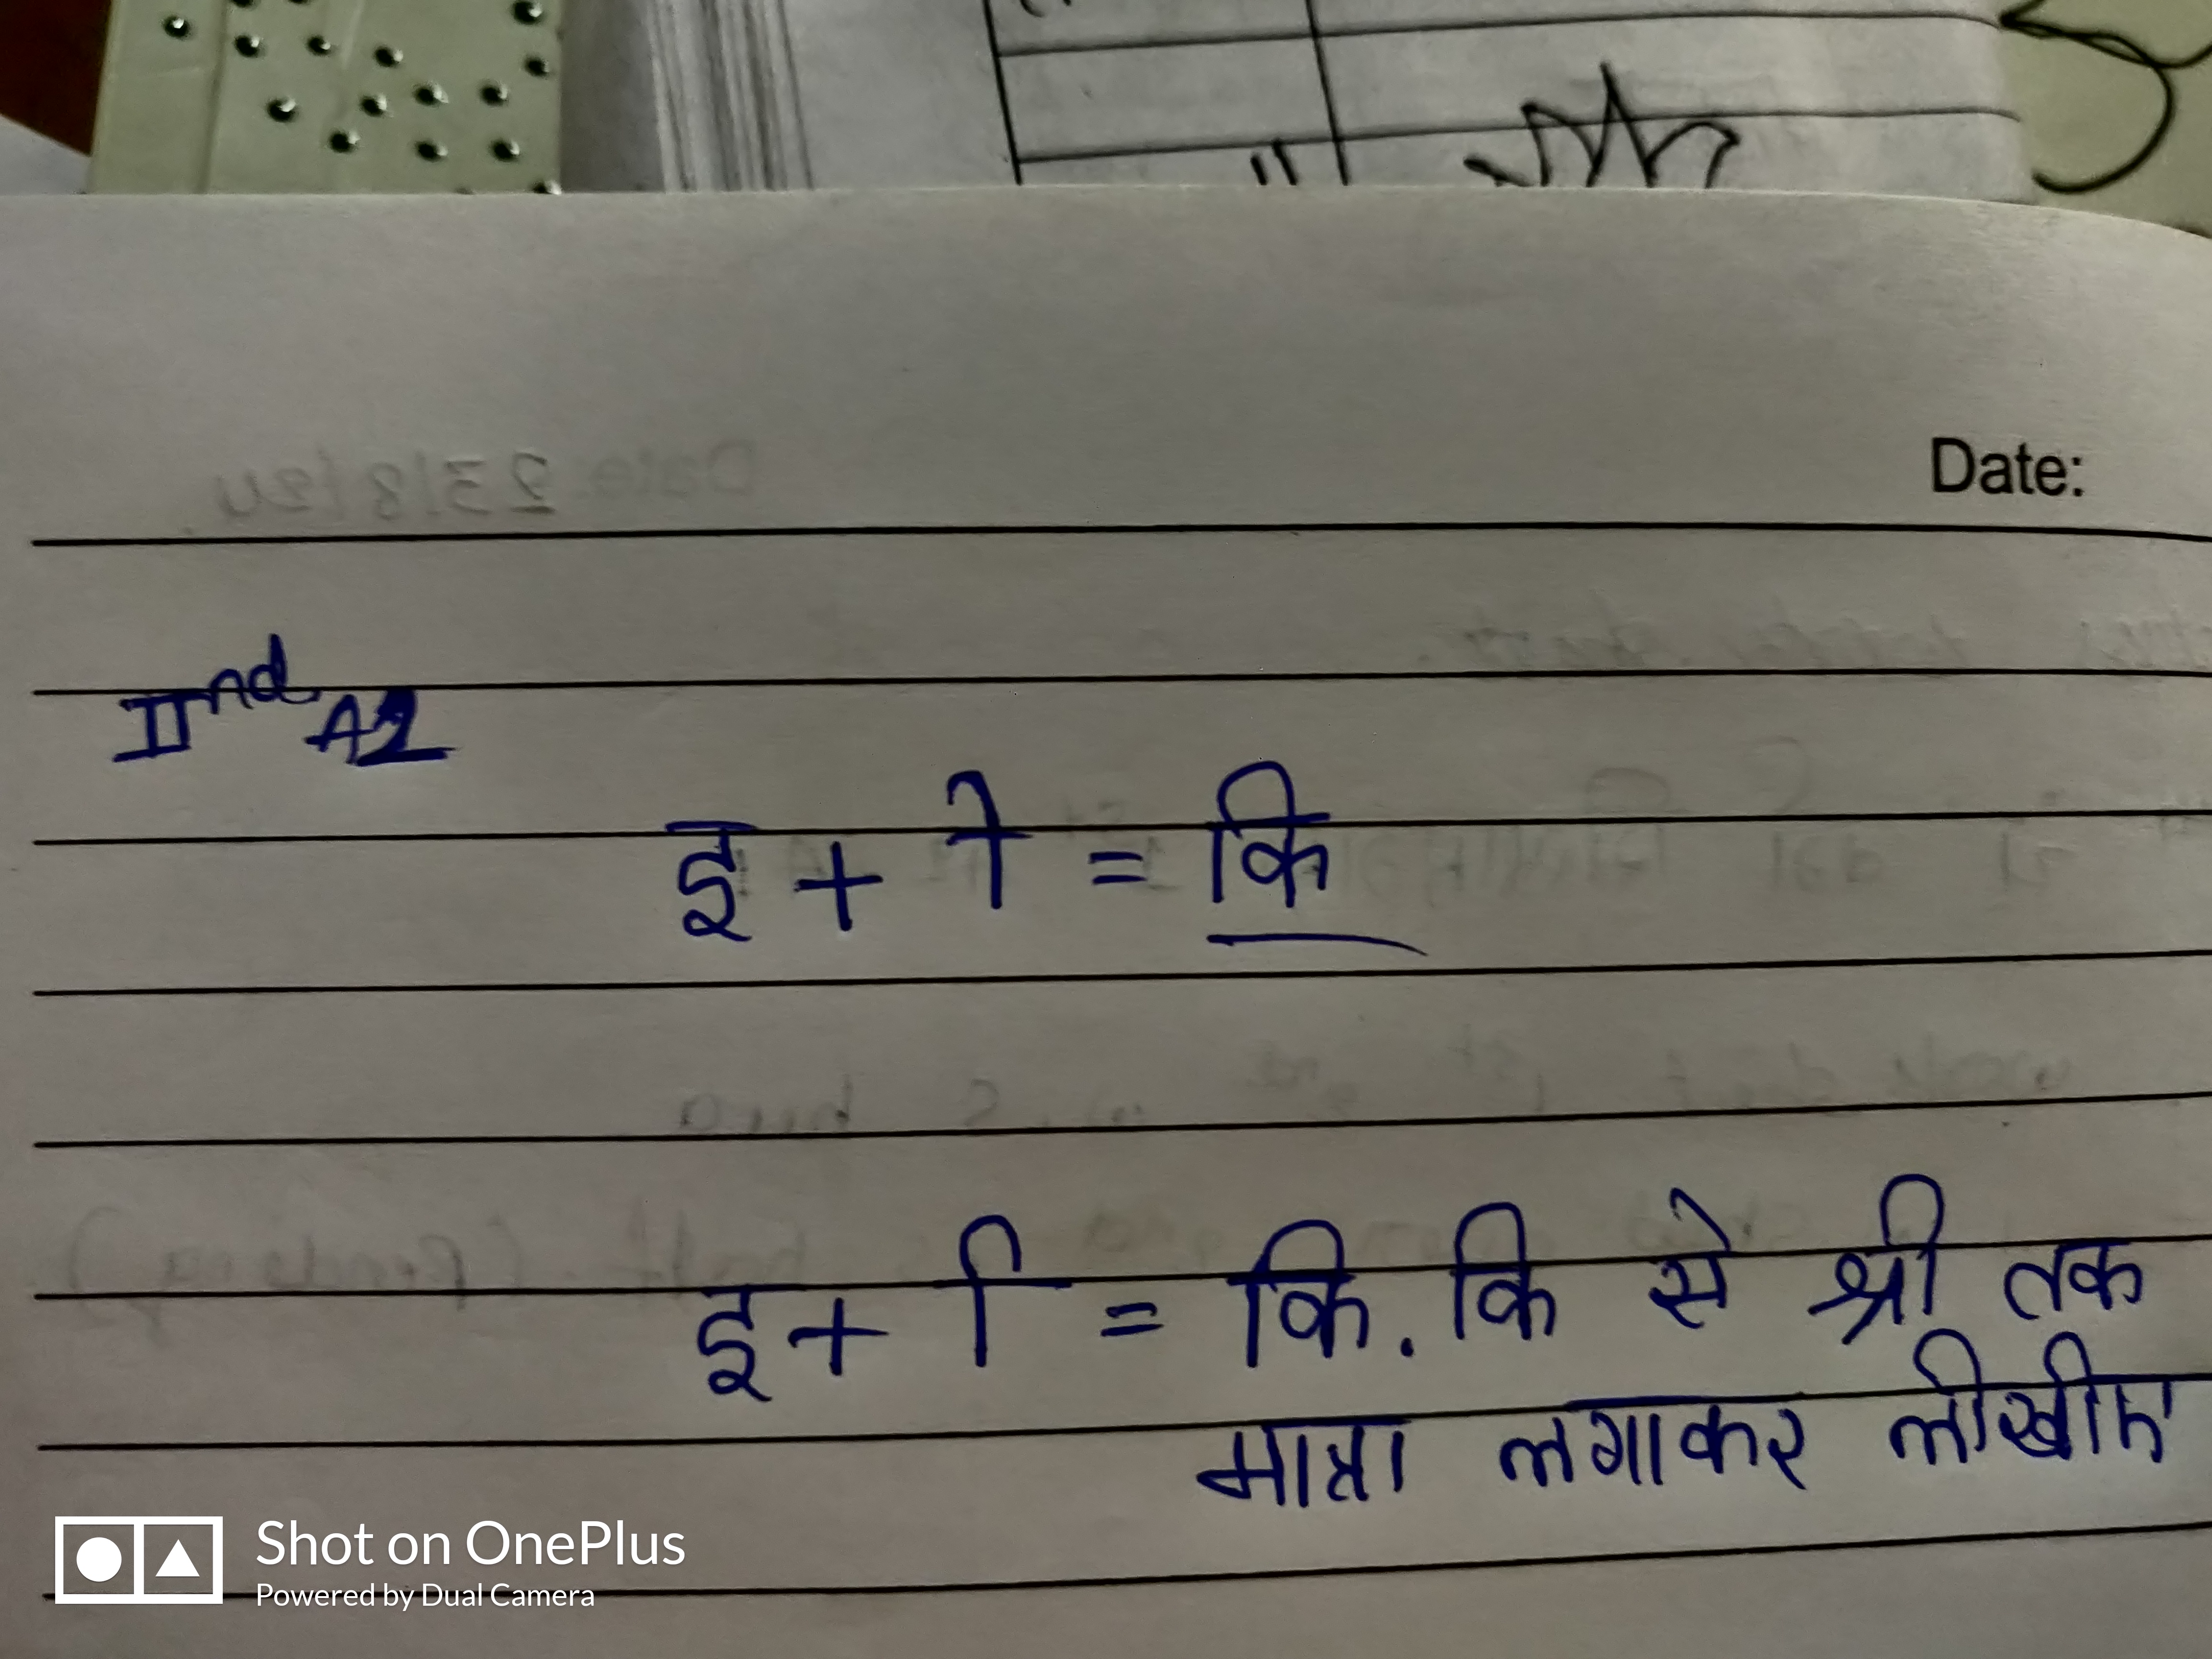 Date:
IInd A2
इ + ि = कि
इ + ि = कि. कि से श्री तक
मात्रा लगाकर लीखीए
Shot on OnePlus
Powered by Dual Camera